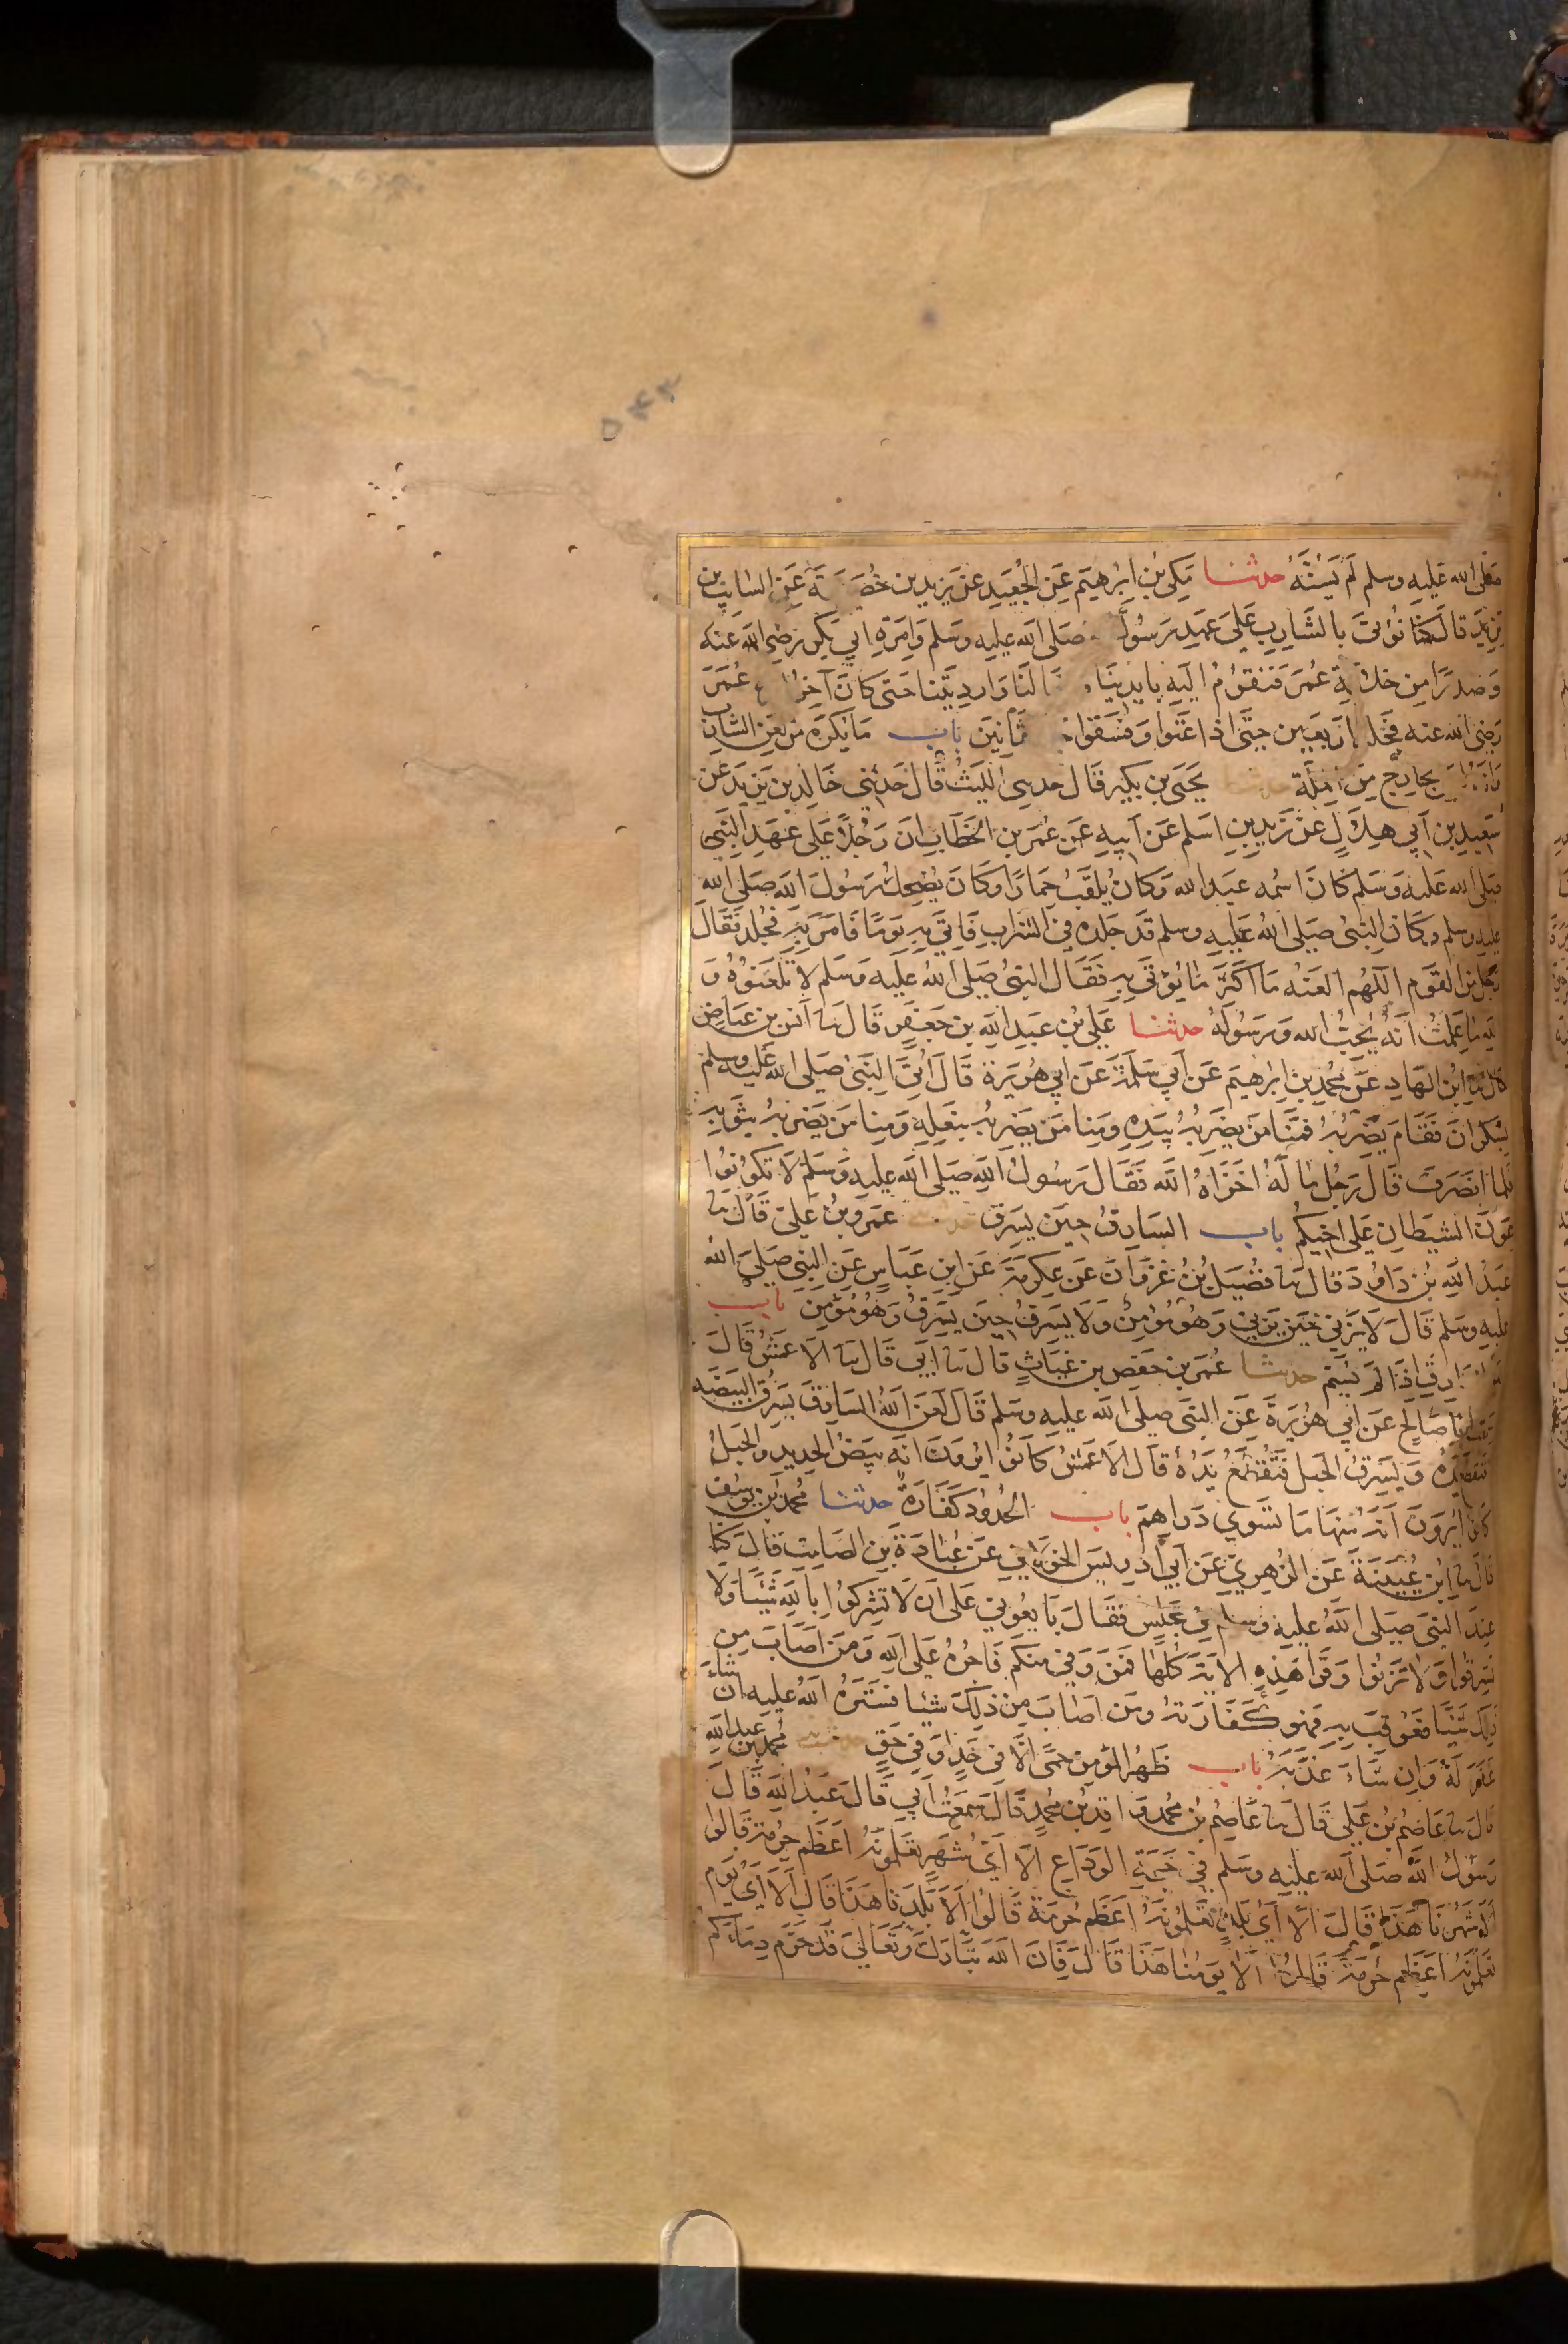 صلى الله عليه وسلم لم يسنه حدثنا مكي بن ابرهيم عن الجعيد عن يزيد بن خصة عن السايب بن
يزيد قال كنا نؤتى بالشارب على عهد رسول صلى الله عليه وسلم وامرة ابي بكر رضي الله عنه
وصدرا من خلافة عمر فنقوم اليه بايدينا نالنا وارديتنا حتى كان آخر عمر
رضى الله عنه فجلد اربعين حتى اذا عتوا وفسقوا ثمانين باب ما يكره من لعن الشارب
بخارج من الملة يحيى بن بكير قال حدثني الليث قال حدثني خالد بن يزيد عن
سعيد بن ابي هلال عن زيد بن اسلم عن ابيه عن عمر بن الخطاب ان رجلا على عهد النبي
صلى الله عليه وسلم كان اسمه عبد الله وكان يلقب حمارا وكان يضحك رسول الله صلى الله
عليه وسلم وكان النبي صلى الله عليه وسلم قد جلده في الشراب فاتي به يوما فامر به فجلد فقال
رجل من القوم اللهم العنه ما اكثر ما يؤتى به فقال النبي صلى الله عليه وسلم لا تلعنوه و
الله ما علمت انه يحب الله ورسوله حدثنا علي بن عبد الله بن جعفر قال ثنا انس بن عياض
قال ثنا ابن الهاد عن محمد بن ابرهيم عن ابي سلمة عن ابي هريرة قال اتي النبي صلى الله عليه وسلم
بسكران فقام يضربه فمنا من يضربه بيده ومنا من يضربه بنعله ومنا من يضربه بثوبه
فلما انصرف قال رجل ما له اخزاه الله فقال رسول الله صلى الله عليه وسلم لا تكونوا
عون الشيطان على اخيكم باب السارق حين يسرق حدثنا عمرو بن علي قال ثنا
عبد الله بن داود قال ثنا فضيل بن غزوان عن عكرمة عن ابن عباس عن النبي صلى الله
عليه وسلم قال لا يزني حين يزني وهو مؤمن ولا يسرق حين يسرق وهو مؤمن باب
السارق اذا لم يسم حدثنا عمر بن حفص بن غياث قال ثنا ابي قال ثنا الاعمش قال
ابا صالح عن ابي هريرة عن النبي صلى الله عليه وسلم قال لعن الله السارق يسرق البيضة
فتقطع يده ويسرق الحبل فتقطع يده قال الاعمش كانوا يرون انه بيض الحديد والحبل
كانوا يرون انه منها ما تسوي دراهم باب الحدود كفارة حدثنا محمد بن يوسف
قال ثنا ابن عيينة عن الزهري عن ابي ادريس الخولاني عن عبادة بن الصامت قال كنا
عند النبي صلى الله عليه وسلم في مجلس فقال بايعوني على ان لا تشركوا بالله شيئا ولا
تسرقوا ولا تزنوا وقرا هذه الاية كلها فمن وفي منكم فاجره على الله ومن اصاب من
ذلك شيئا فعوقب به فهو كفارته ومن اصاب من ذلك شيئا فستره الله عليه ان شاء
غفر له وان شاء عذبه باب ظهر المؤمن حمى الا في حد او في حق حدثنا محمد بن عبد الله
قال ثنا عاصم بن علي قال ثنا عاصم بن محمد واقد بن محمد قال سمعت ابي قال عبد الله قال
رسول الله صلى الله عليه وسلم في حجة الوداع الا اي شهر تعلمونه اعظم حرمة قالوا
الا شهرنا هذا قال الا اي بلد تعلمونه اعظم حرمة قالوا الا بلدنا هذا قال الا اي يوم
تعلمونه اعظم حرمة قالوا الا يومنا هذا قال فان الله تبارك وتعالى قد حرم دماءكم